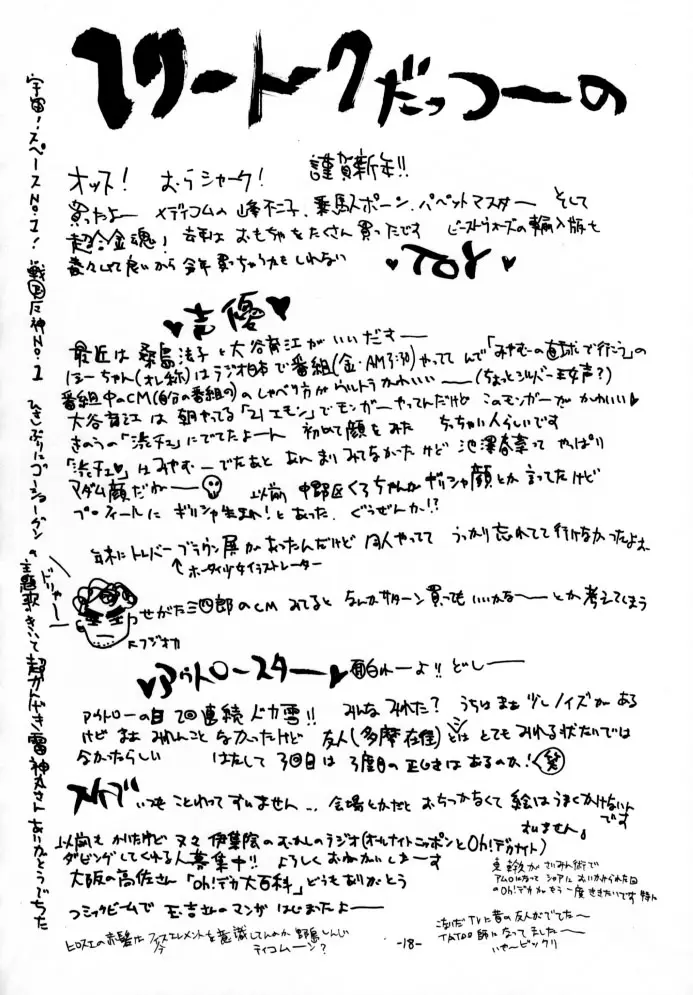 フリートークだっつーの
オッス! むらシャーク! 謹賀新年!!
買ったよー メディコムの峰不二子、乗馬スポーン、パペットマスター そして
超合金魂! 去年は おもちゃをたくさん買ったです ビーストウォーズの輸入版も
着々として良いから今年買っちゃうかもしれない ♥TOY♥
♥声優♥
最近は桑島法子と大谷育江がいいだすー
ほーちゃん(オレ称)はラジオ日本で番組(金・AM3:30)やっててんで「みやむーの直球で行こう」の
番組中のCM(自分の番組の)のしゃべり方がウルトラかわいいー(ちょっとシルバー王女声?)
大谷育江は朝やってる「21エモン」でモンガーやってんだけど このモンガーがかわいい♥
きのうの「渋チェ」にでてたよーん 初めて顔をみた ちっちゃい人らしいです
「渋チェ♥」はみやむーでたあと あんまりみてなかったけど 池澤春菜って やっぱり
マダム顔だがー 以前 中野区くろちゃんが ギリシャ顔とか言ってたけど
プロフィールに ギリシャ生まれ!とあった、ぐうぜんか!?
年末にトレバー・ブラウン展があったんだけど 同人やってて うっかり忘れてて行けなかったよォ
↑ホータイ少女イラストレーター
ドリャー
せがた三四郎のCM みてると なんかサターン買ってもいいかなー とか考えてしまう
Kフジオカ
♥アウトロースター♥ 面白れーよ!! どしー
アウトローの日 2回連続ドカ雪!! みんなみれた? うちはまだ少しノイズがある
けど まだ みれんことなかったけど 友人(多摩在住)とはとてもみれる状たいでは
なかったらしい はたして3回目は3度目の正じきはあるのか!(笑)
スケブ いつもことわってすいません… 会場とかだと おちつかなくて 絵はうまくかけないんです
すいません。
以前もかいたけど 又々 伊集院のむかしのラジオ(オールナイトニッポンとOh!デカナイト)
ダビングしてくれる人募集中!! よろしくおねがいしまーす
大阪の高佐さん「Oh!デカ大百科」どうもありがとう
コミックビームで 玉吉さんのマンガ はじまったよー
ヒロスエの赤髪は フィフスエレメントを意識してんのか
ティコムーン?
さいみん術で
アムロになって シャアに おいかけられた回
のOh!デカがもう一度ききたいです
こないだTVに昔の友人がでてた〜
TATOO師になってました〜
いやービックリ
-18-
宇宙!スペースNo.1! 戦国広神No.1 ひさしぶりにゴーショーグンの主題歌きいて超かんげき雷神丸さんありがとうでちた